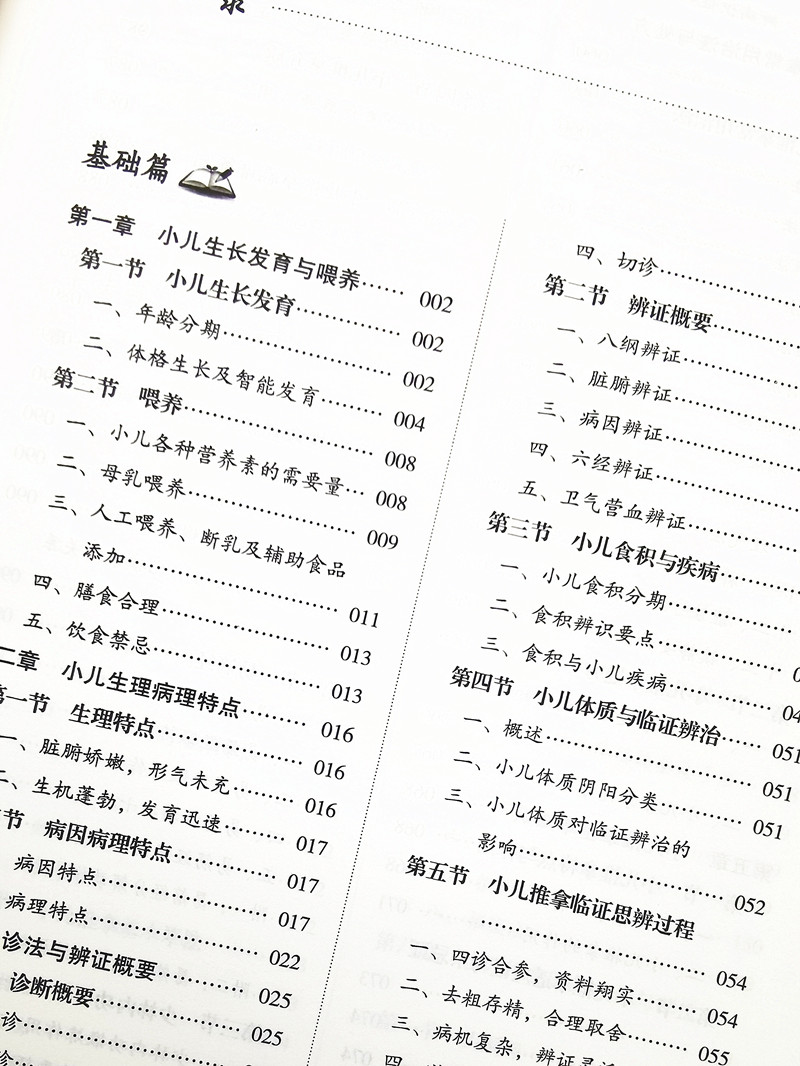 录
基础篇
第一章 小儿生长发育与喂养…… 002
第一节 小儿生长发育………… 002
一、年龄分期………………… 002
二、体格生长及智能发育……… 004
第二节 喂养………………… 008
一、小儿各种营养素的需要量… 008
二、母乳喂养………………… 009
三、人工喂养、断乳及辅助食品
添加………………… 011
四、膳食合理………………… 013
五、饮食禁忌………………… 013
二章 小儿生理病理特点……… 016
第一节 生理特点……………… 016
一、脏腑娇嫩，形气未充……… 016
二、生机蓬勃，发育迅速……… 017
节 病因病理特点………… 017
病因特点………………… 017
病理特点………………… 022
诊法与辨证概要………… 025
诊断概要………………… 025
诊…………………
诊
四、切诊…………………
第二节 辨证概要…………
一、八纲辨证……………
二、脏腑辨证……………
三、病因辨证……………
四、六经辨证……………
五、卫气营血辨证………
第三节 小儿食积与疾病………
一、小儿食积分期…………
二、食积辨识要点…………
三、食积与小儿疾病……… 04
第四节 小儿体质与临证辨治…… 051
一、概述………………… 051
二、小儿体质阴阳分类……… 051
三、小儿体质对临证辨治的
影响………………… 052
第五节 小儿推拿临证思辨过程
………………… 054
一、四诊合参，资料翔实……… 054
二、去粗存精，合理取舍……… 055
三、病机复杂，辨证灵
四、